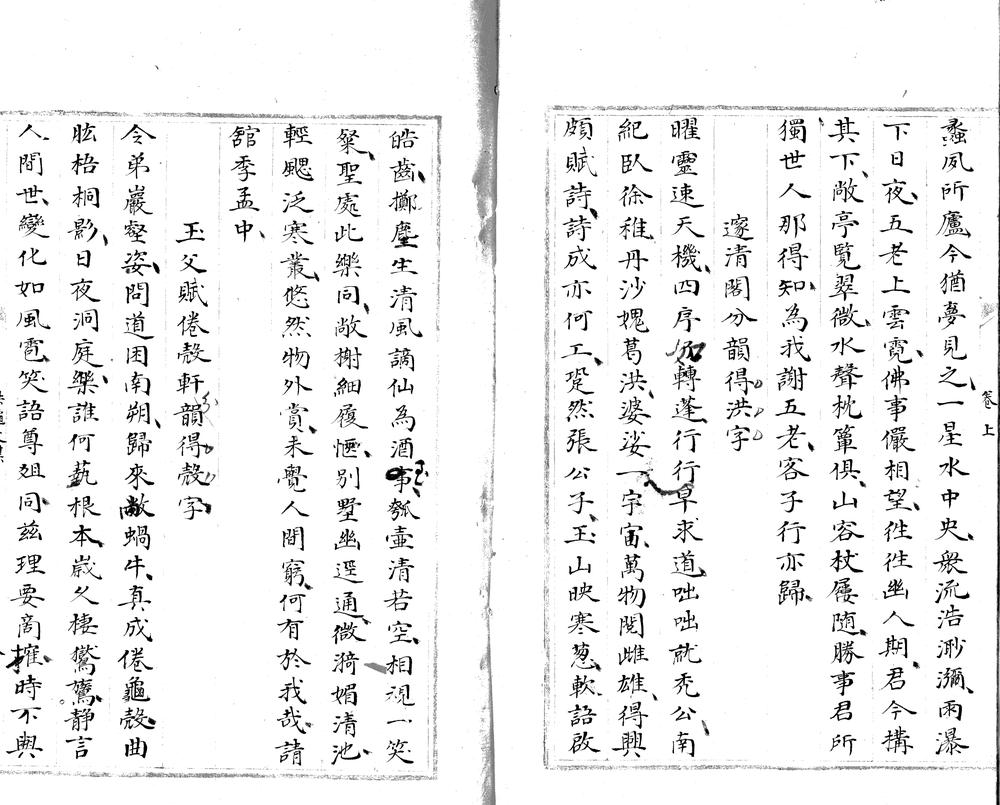 蠡夙所廬今猶夢見之一星水中央衆流浩渺瀰雨瀑
下日夜五老上雲霓佛事儼相望往往幽人期君今搆
其下敞亭覽翠微水聲枕簟俱山容杖屨随勝事君所
獨世人那得知為我謝五老客子行亦歸
邃清閣分韻得洪字
曜靈速天機四序如轉蓬行行早求道咄咄就禿公南
紀臥徐稚丹沙媿葛洪婆娑一宇宙萬物閱雌雄得興
頗賦詩詩成亦何工跫然張公子玉山映寒葱軟語啟
皓齒擲麈生清風謫仙為酒事瓠壺清若空相視一笑
粲聖處此樂同敞榭細履愜别墅幽逕通微漪媚清池
輕颸泛寒叢悠然物外賞未覺人間窮何有於我哉請
舘季孟中
玉父賦倦殼軒韻得殼字
令弟巖壑姿問道困南朔歸來敞蝸牛真成倦龜殼曲
肱梧桐影日夜洞庭樂誰何藝根本歲久棲鸑鷟静言
人間世變化如風雹笑語尊俎同兹理要商搉時不與
卷上